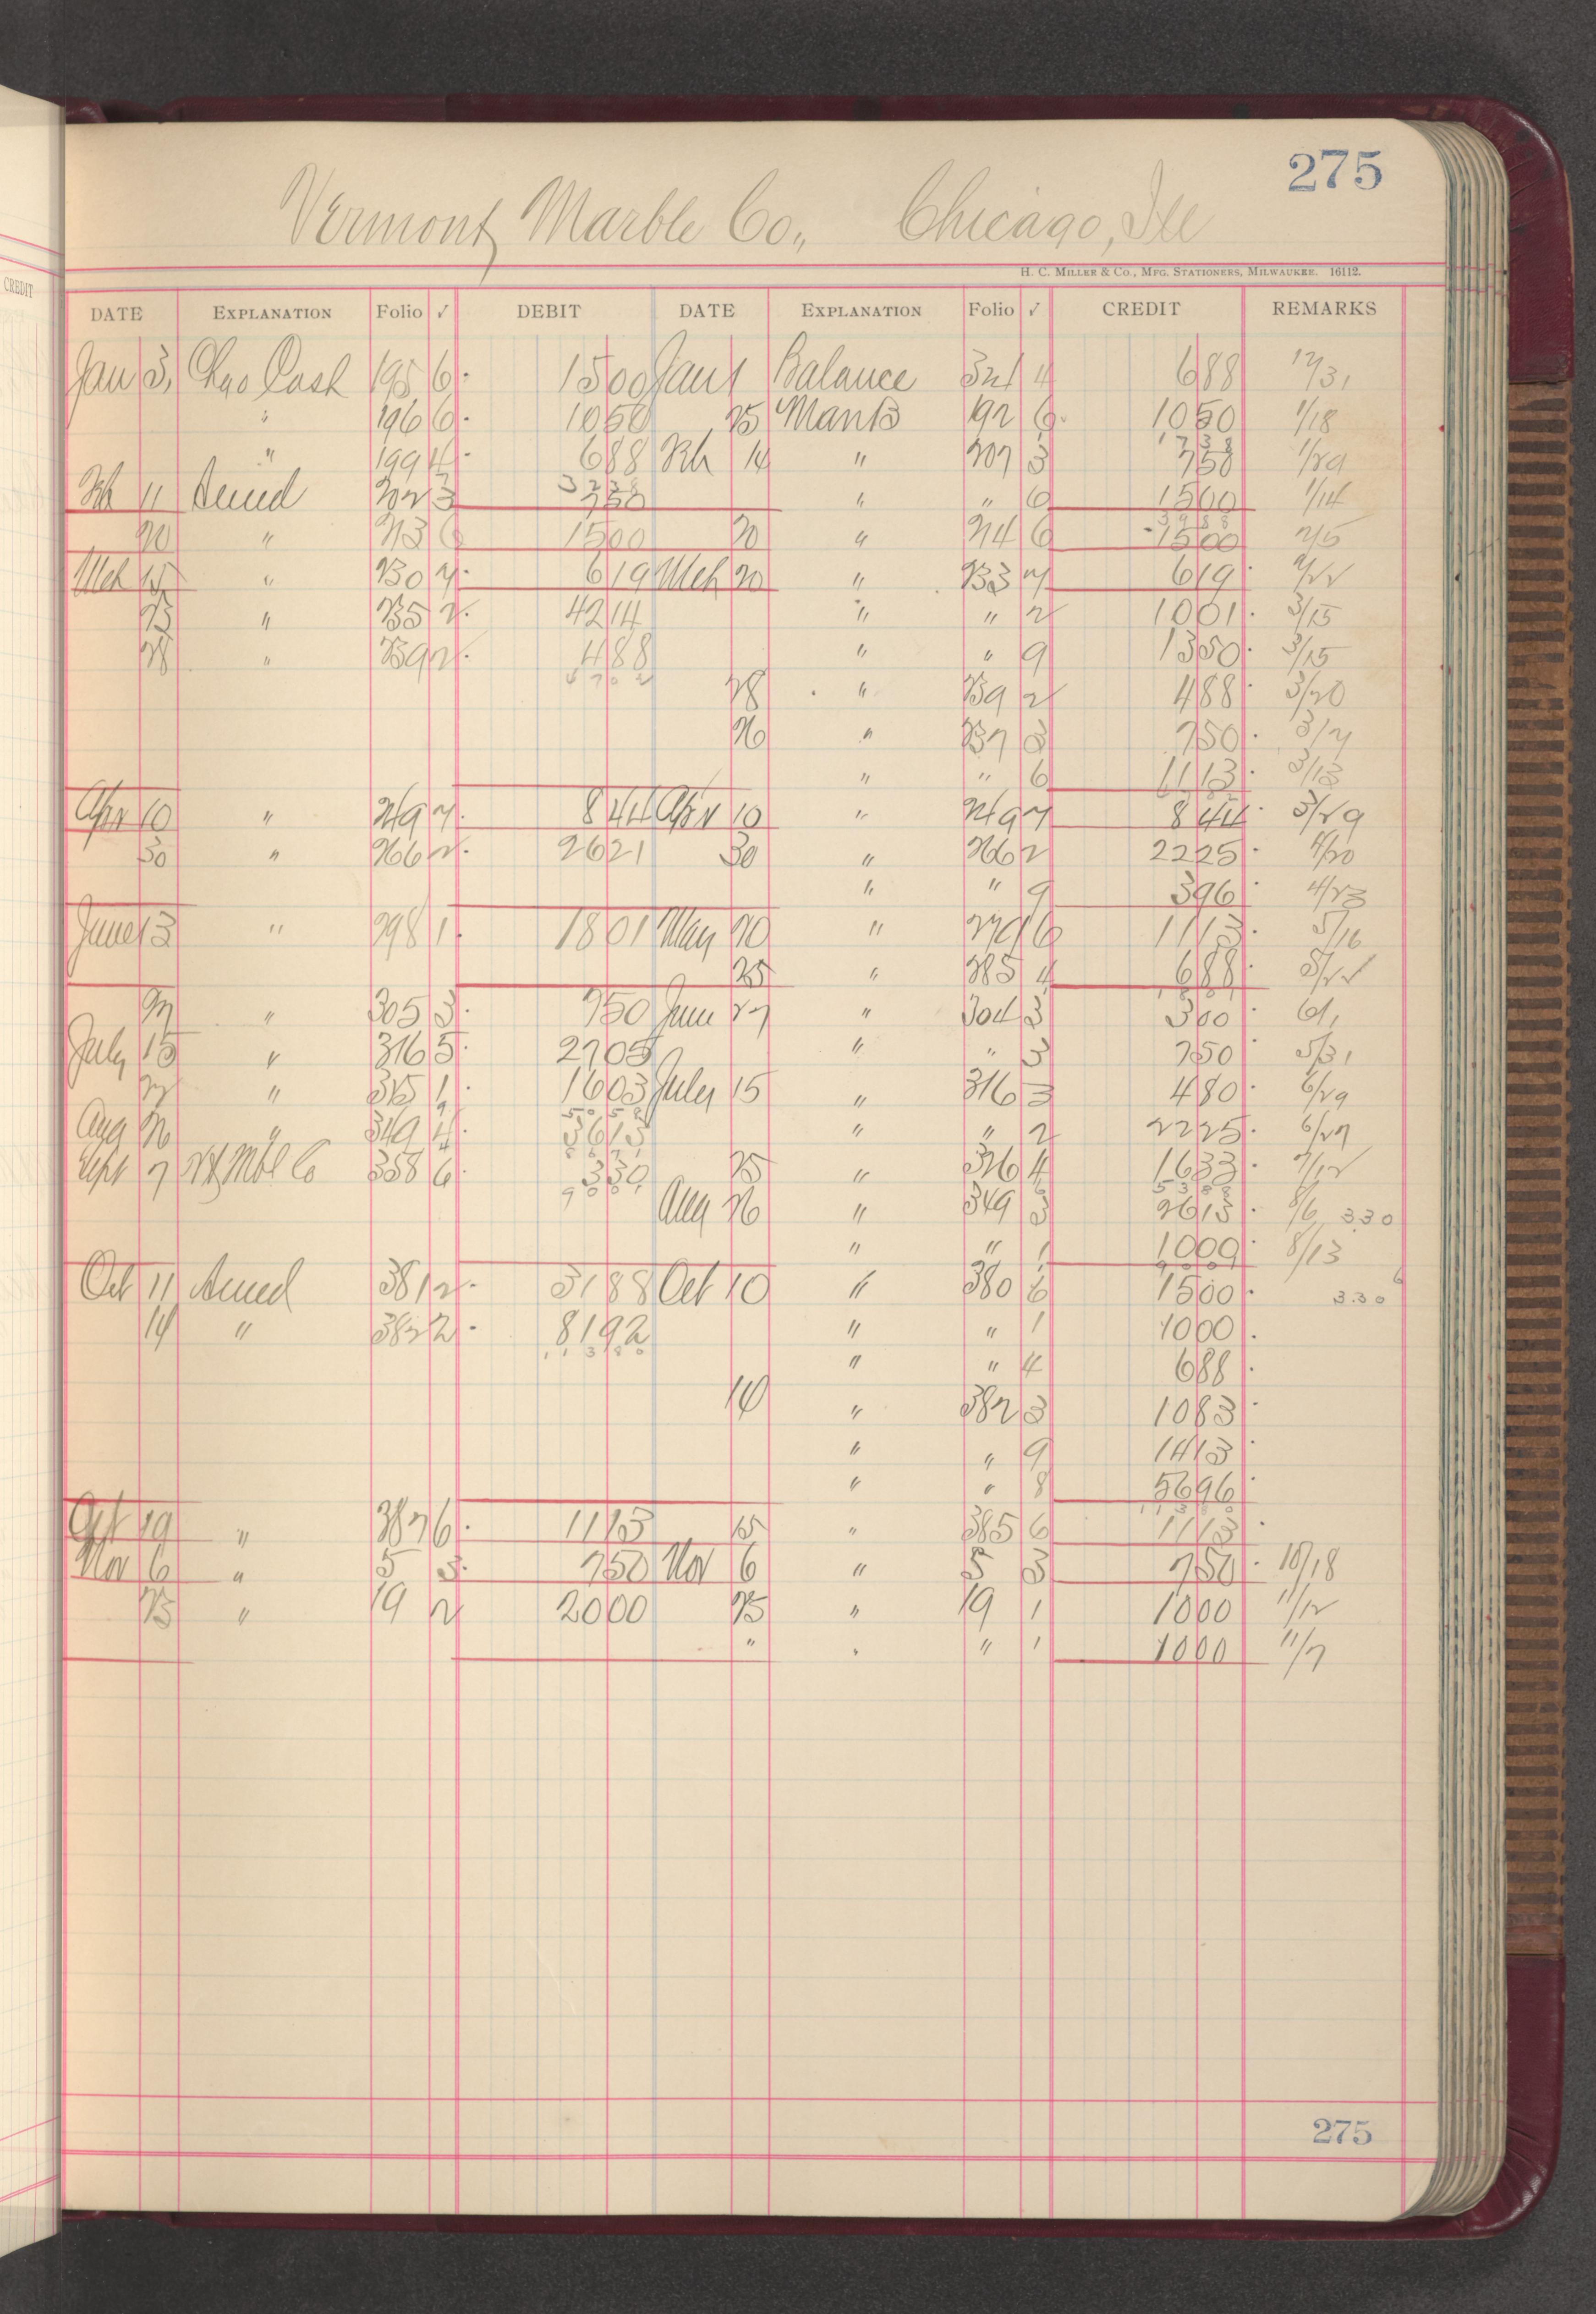 275
Vermont Marble Co., Chicago, Ill
H. C. MILLER & CO., MFG. STATIONERS, MILWAUKEE. 16112.
CREDIT
DATE EXPLANATION Folio ✓ DEBIT DATE EXPLANATION Folio ✓ CREDIT REMARKS
Jan 3, Chgo Cash 195 6 1500 Jan 1 Balance 321 4 688 12/31
" 196 6 1050 25 192 6 1050 1/18
" 199 4 688 14 " 207 3 750 1/29
11 202 3 750 " " 6 1500 1/14
20 " 213 6 1500 20 " 214 6 1500 2/5
Mch 15 " 230 7 619 Mch 20 " 233 7 619 2/22
25 " 235 2 4214 " " 2 1001 3/15
28 " 239 2 488 " " 9 1350 3/15
5702 28 " 239 2 488 3/20
26 " 237 3 750 3/7
" " 6 1113 3/13
Apr 10 " 249 7 844 Apr 10 " 249 7 844 3/29
30 " 266 2 2621 30 " 266 2 2225 4/20
" " 9 396 4/23
June 13 " 298 1 1801 May 20 " 279 6 1113 5/16
25 " 285 4 688 5/22
27 " 305 3 750 June 27 " 304 3 300 6/1
July 15 " 316 5 2705 " " 3 750 5/31
" 325 1 1603 July 15 " 316 3 480 6/29
Aug 26 " 349 4 3613 " " 2 2225 6/27
Sept 7 Mbl Co 358 6 330 25 " 326 4 1633 7/12
Aug 26 " 349 3 2613 8/6 330
" " 1 1000 8/13
Oct 11 381 2 3188 Oct 10 " 380 6 1500 330
14 " 382 2 8192 " " 1 1000
11380 " " 4 688
14 " 382 3 1083
" " 9 1413
" " 8 5696
Oct 19 " 387 6 1113 15 " 385 6 1113
Nov 6 " 5 3 750 Nov 6 " 5 3 750 10/18
25 " 19 2 2000 25 " 19 1 1000 11/12
" " " 1 1000 11/7
275